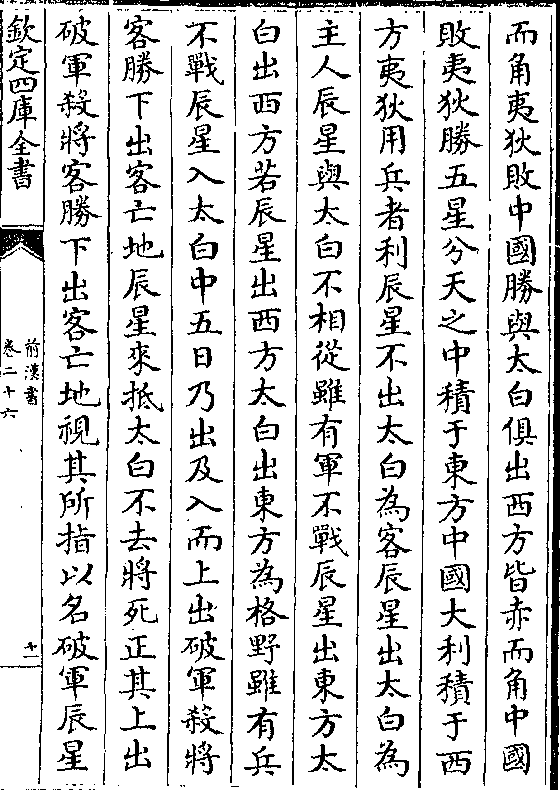 而角夷狄敗中國勝與太白俱出西方皆赤而角中國
敗夷狄勝五星分天之中積于東方中國大利積于西
方夷狄用兵者利辰星不出太白為客辰星出太白為
主人辰星與太白不相從雖有軍不戰辰星出東方太
白出西方若辰星出西方太白出東方為格野雖有兵
不戰辰星入太白中五日乃出及入而上出破軍殺將
客勝下出客亡地辰星來抵太白不去將死正其上出
破軍殺將客勝下出客亡地視其所指以名破軍辰星
欽定四庫全書
前漢書
卷二十六
十